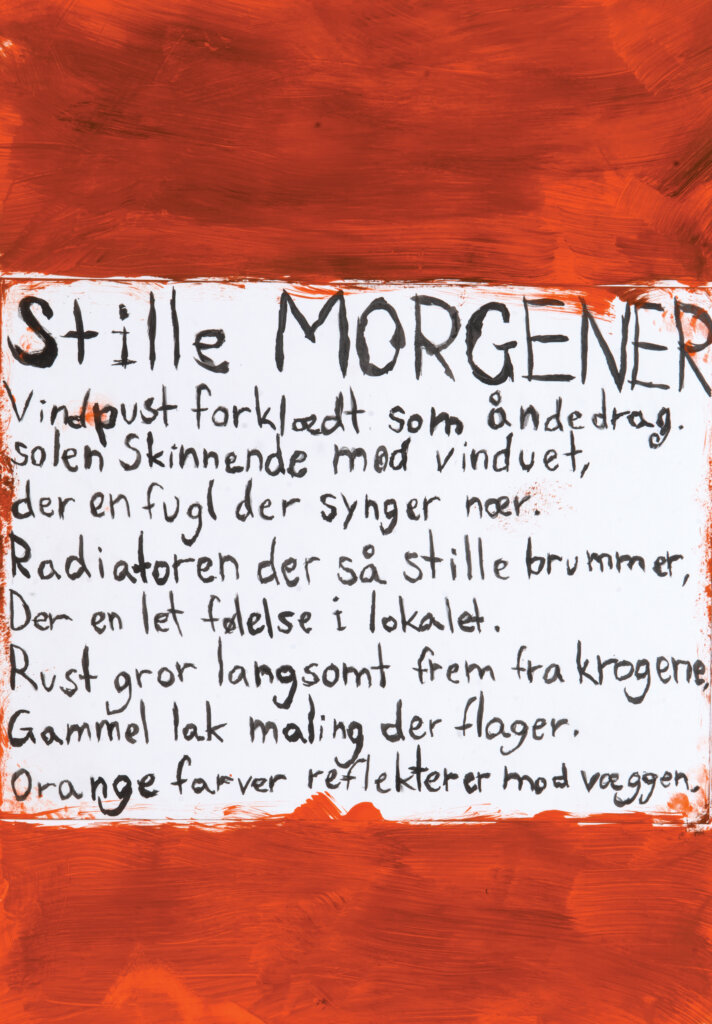 Stille MORGENER
Vindpust forklædt som åndedrag.
solen Skinnende mod vinduet,
der en fugl der synger nær.
Radiatoren der så stille brummer,
Der en let følelse i lokalet.
Rust gror langsomt frem fra krogene,
Gammel lak maling der flager.
Orange farver reflekterer mod væggen.